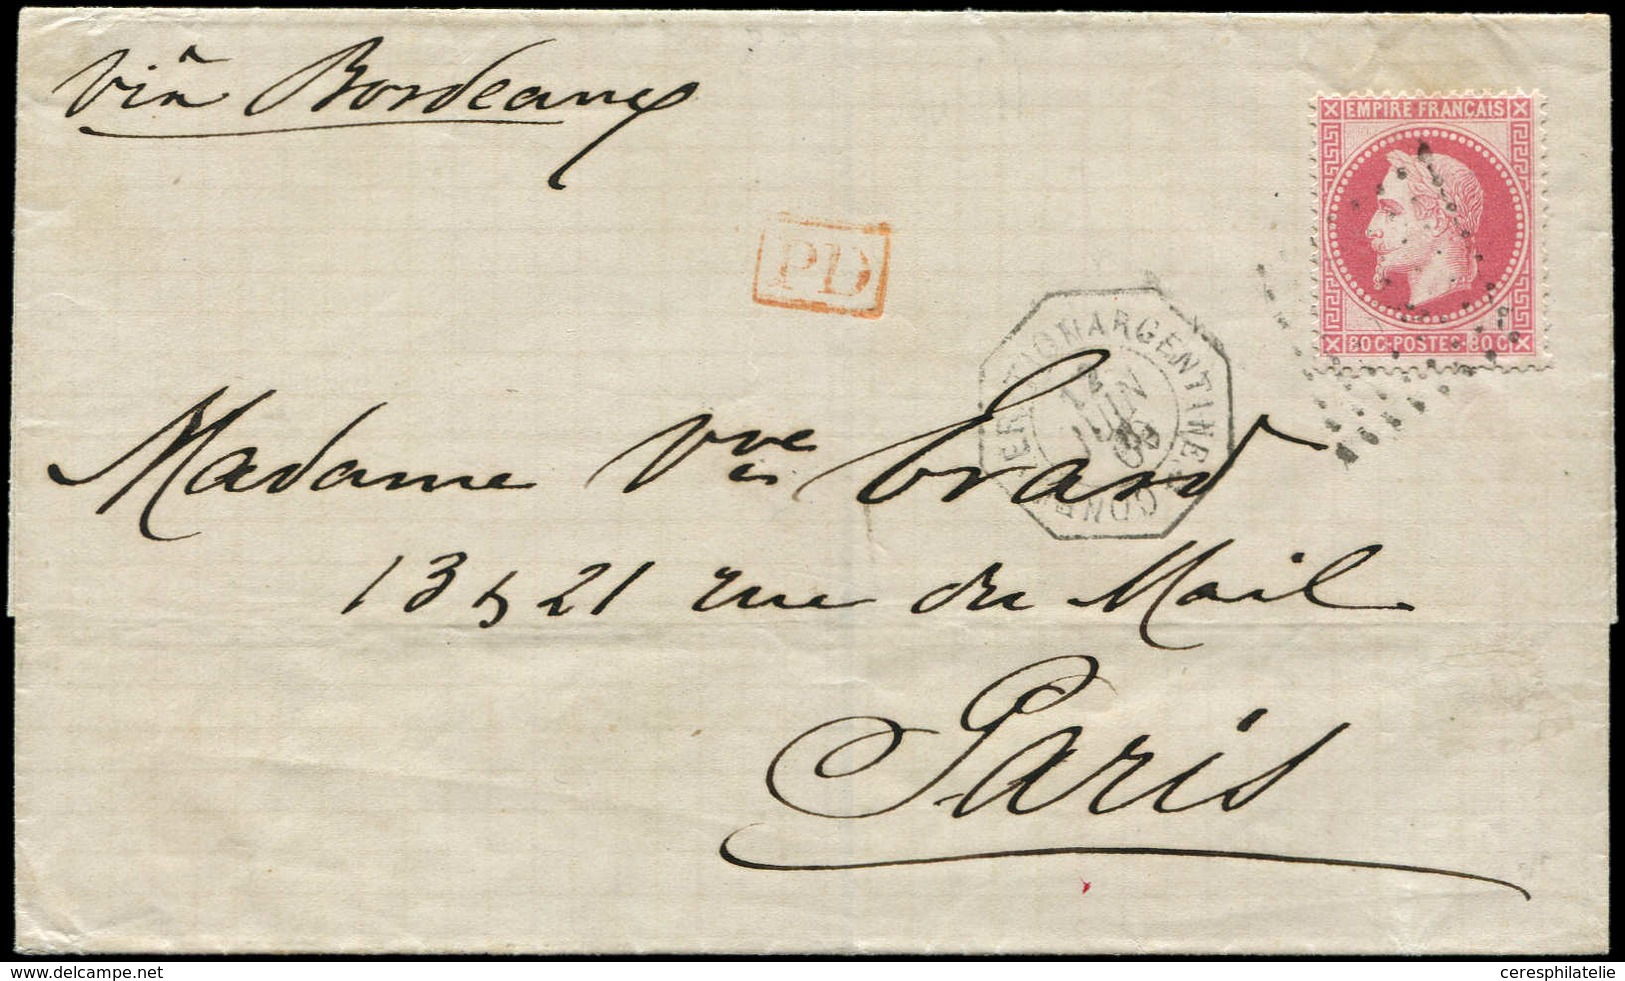 viâ Bordeaux
EMPIRE FRANÇAIS
80 C·POSTES·80 C
PD
CONF. ARGENTINE
12
JUIN
69
Madame Vve Erard
13 & 21 rue du Mail
Paris
www.delcampe.net
ceresphilatelie